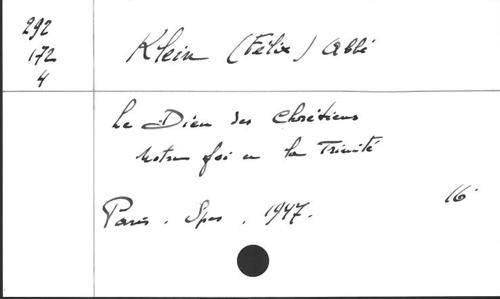 292
172
4
Klein (Félix) Abbé
Le Dieu des Chrétiens
Notre foi en la Trinité
Paris. Spes, 1947.
16°